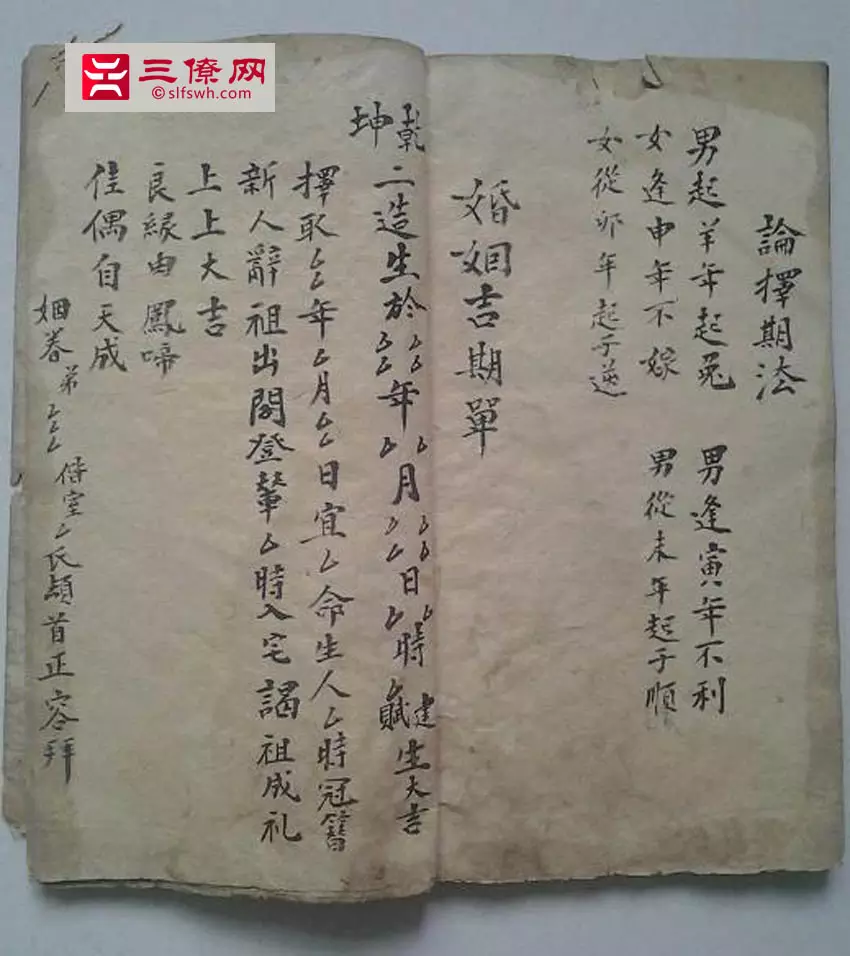 三僚网
©slfswh.com
論擇期法
男起羊年起兎 男逢寅年不利
女逢申年不嫁 男從未年起子順
女從卯年起子逆
婚姻吉期單
乾
坤
二造生於厶厶年厶月厶厶日厶時建生大吉
擇取厶厶年厶月厶厶日宜厶命生人厶時冠簪
新人辭祖出閣登輦厶時入宅謁祖成礼
上上大吉
良緣由鳳啼
佳偶自天成
姻眷弟厶厶厶侍室厶氏頴首正容拜